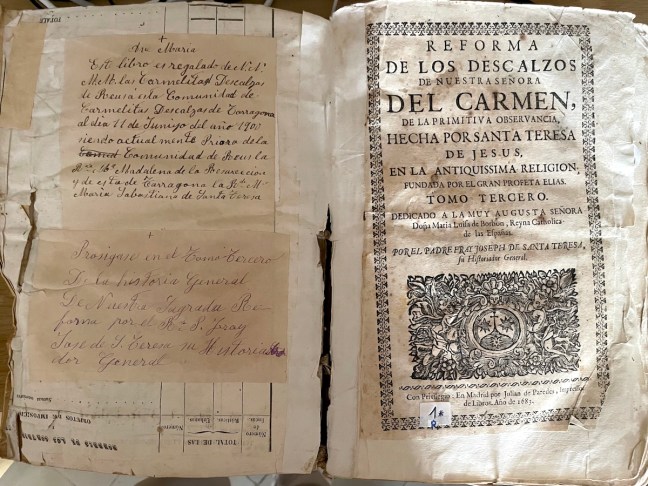 TOTALES
Ave Maria
Este libro es regalado de N. M.
M.tt. las Carmelitas Descalzas
de Reus á esta Comunidad de
Carmelitas Descalzas de Tarragona
al dia 11 de Juniyo del año 190
siendo actualmente Priora de la
Comuni Comunidad de Reus la
R. M. Madalena de la Resureccion
y de esta de Tarragona la R. M.
Maria Sabastiana de Santa Teresa
Prosigase en el Tomo Tercero
De la historia General
De Nuestra Sagrada Re
forma por el R. P. Fray
Jose de S. Teresa su Historia
dor General
TOTAL DE LAS
REFORMA
DE LOS DESCALZOS
DE NUESTRA SEÑORA
DEL CARMEN,
DE LA PRIMITIVA OBSERVANCIA,
HECHA POR SANTA TERESA
DE JESUS,
EN LA ANTIQUISSIMA RELIGION,
FUNDADA POR EL GRAN PROFETA ELIAS.
TOMO TERCERO.
DEDICADO A LA MUY AUGUSTA SEÑORA
Doña Maria Luisa de Borbon, Reyna Catholica
de las Españas.
POR EL PADRE FRAY JOSEPH DE SANTA TERESA,
su Historiador General.
Con Privilegio: En Madrid por Julian de Paredes, Impressor
de Libros, Año de 1683.
1ª
8